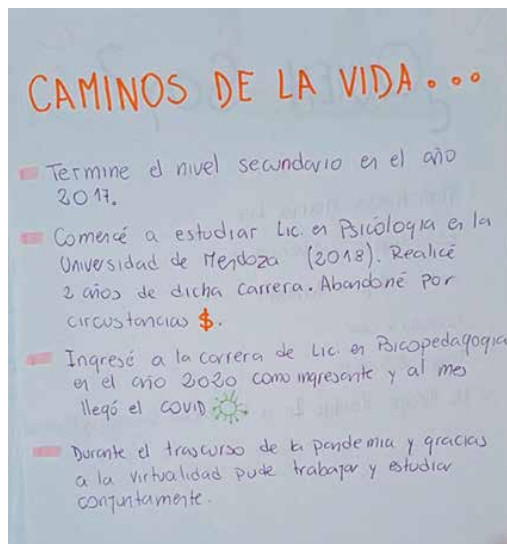 CAMINOS DE LA VIDA...
Terminé el nivel secundario en el año
2017.
Comencé a estudiar Lic. en Psicología en la
Universidad de Mendoza (2018). Realicé
2 años de dicha carrera. Abandoné por
circustancias $.
Ingresé a la carrera de Lic. en Psicopedagogia
en el año 2020 como ingresante y al mes
llegó el COVID
Durante el trascurso de la pandemia y gracias
a la virtualidad pude trabajar y estudiar
conjuntamente.